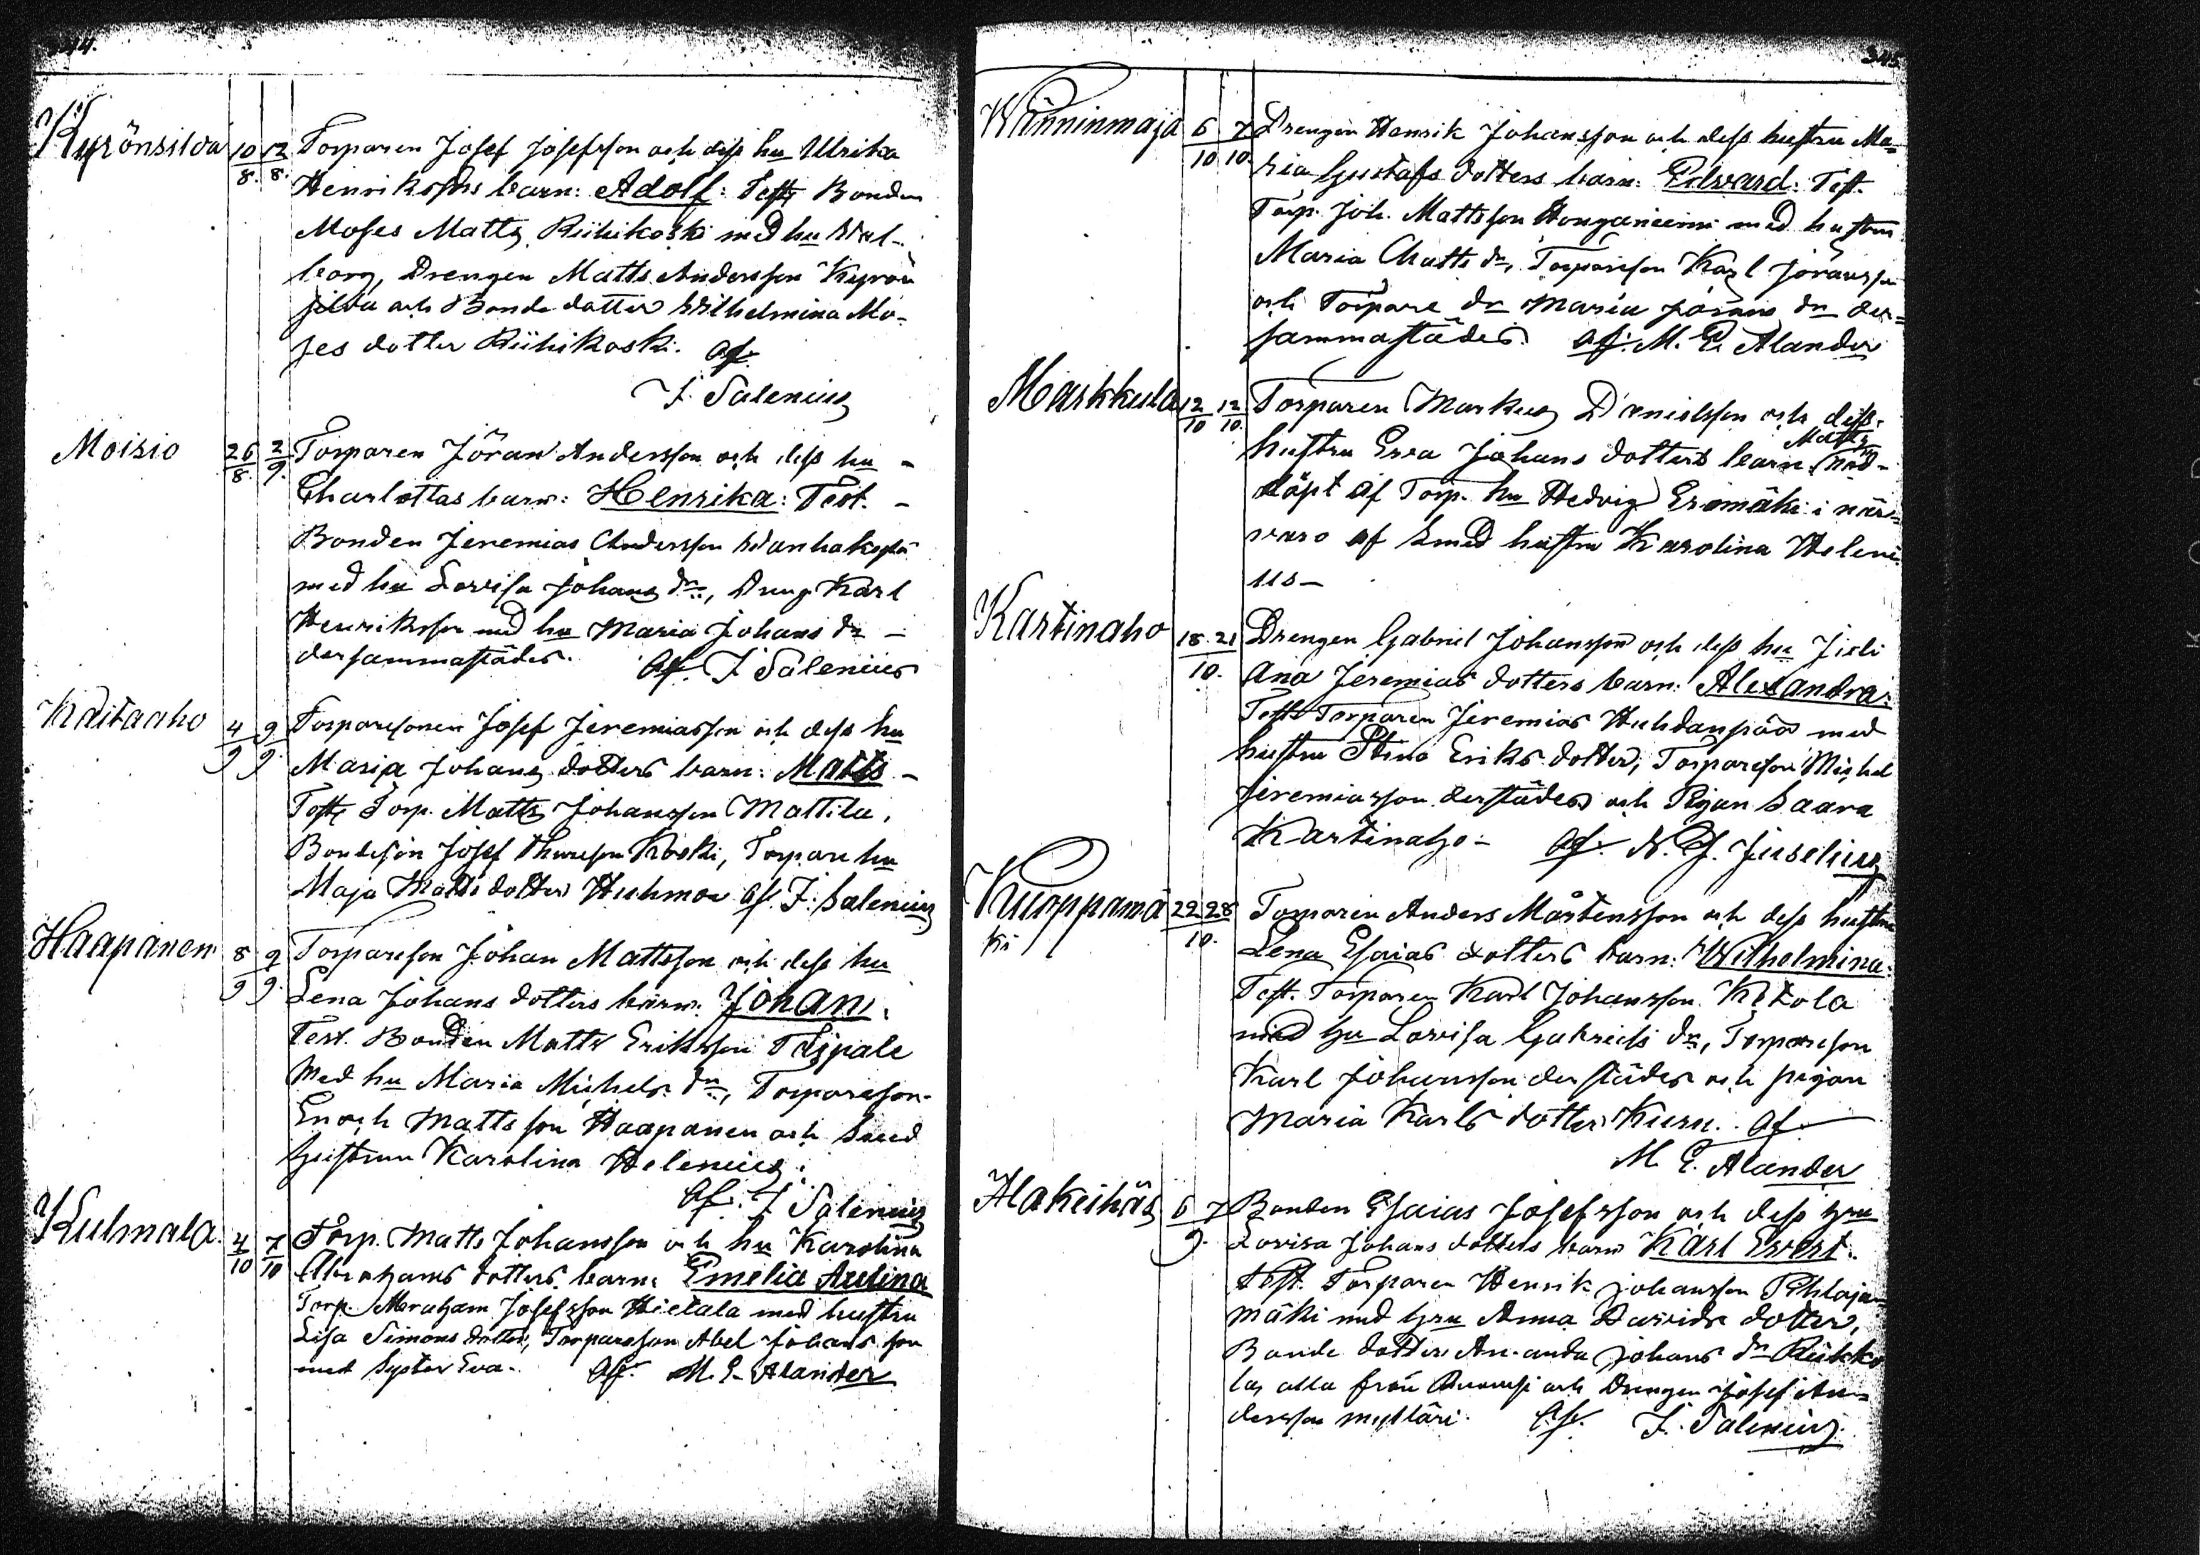 344.
Kyrönsilda 10/8. 12/8. Torparen Josef Josefsson och dess hu Ulrika
Henriksdrs barn: Adolf: Test Bonden
Moses Matts Riihikoski med hu Wal-
borg, Drengen Matts Andersson Kyrön
silda och Bonde dotter Wilhelmina Mo-
ses dotter Riihikoski. Af.
J. Salenius
Moisio 26/8. 2/9. Torparen Jöran Andersson och dess hu -
Charlottas barn: Henrika: Test. -
Bonden Jeremias Andersson Wanhakylä
med hu Lovisa Johans dr, Dreng Karl
Henriksson med hu Maria Johans dr -
dersammastädes. Af. J Salenius
Kaitaaho 4/9 9/9. Torparesonen Josef Jeremiasson och dess hu
Maria Johans dotters barn: Matts -
Test Torp. Matts Johansson Mattila,
Bondeson Josef Thureson Koski, Torpare hu
Maja Matts dotter Huhmar Af. J. Salenius
Haapanen 8/9 9/9. Torpareson Johan Mattsson och dess hu
Lena Johans dotters barn: Johan.
Test. Bonden Matts Eriksson Taipale
Med hu Maria Michels dr, Torpareson
Enoch Mattsson Haapanen och Smed
hustrun Karolina Helenius.
Af. J Salenius
Kuhnala. 4/10 7/10 Torp. Matts Johansson och hu Karolina
Abrahams dotters barn: Emelia Aulina
Torp. Abraham Josefsson Hietala med hustru
Lisa Simons dotter, Torpareson Abel Johansson
med Syster Eva. Af. M. E. Alander
345
Wänninmaja 6/10 7/10. Drengen Henrik Johansson och dess hustru Ma=
ria Gustafs dotters barn: Edvard: Test.
Torp. Joh. Mattsson Honganiemi med hustru
Maria Matts dr, Torpareson Karl Jöransson
och Torpare dr Maria Jörans dr der=
sammastädes. Af. M. E. Alander
Markkula 12/10 12/10. Torparen Markus Danielsson och dess
hustru Eva Johans dotters barn: Matts nöd-
döpt af Torp. hu Hedvig Erämäki i när=
varo af Smed hustru Karolina Heleni
us-
Kartinaho 18. 21/10. Drengen Gabriel Johansson och dess hu Juli
Ana Jeremias dotters barn: Alexandra:
Test Torparen Jeremias Huhdanpää med
hustru Stina Eriks dotter, Torpareson Michel
Jeremiasson derstädes och Pigan Saara
Kartinaho- Af. N. J. Juselius
Kuoppamä
ki 22 28/10. Torparen Anders Mårtensson och dess hustru
Lena Esaias dotters barn: Wilhelmina:
Test. Torparen Karl Johansson Ketola
med hu Lovisa Gabriels dr, Torpareson
Karl Johansson derstädes och pigan
Maria Karls dotter Kuru. Af
M. E. Alander
Hakeihäs 6 7/9. Bonden Esaias Josefsson och dess hru
Lovisa Johans dotters barn Karl Evert.
Test. Torparen Henrik Johansson Pihlaja-
mäki med hru Anna Davids dotter,
Bonde dotter Amanda Johans dr
las alla från och Drengen Josef An=
dersson Mylläri. Af. J. Salenius.